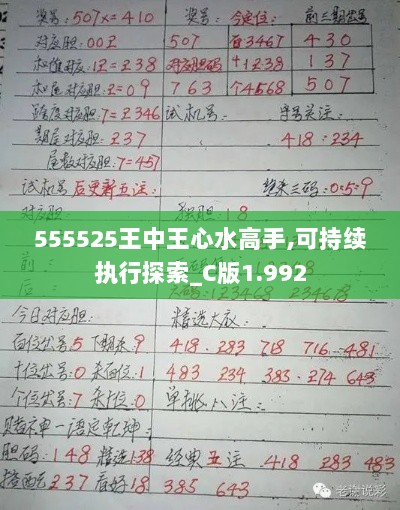 奖号:507x=410 奖号: 今定位: 前三期奖号
对应胆:00I 507 百3467 430
和值对应:I=238 对应胆码 十1238 137
和尾对应胆:I=09 763 个4568 507
跨度对应胆:7=2346 试机号: 字号关注:
期尾对应胆:237 418:234
尾数对应胆:7=457
试机号后更新五注: 绝杀三码:0:5:9
对应胆 独胆:18
555525王中王心水高手,可持续
执行探索_C版1.992
今日对应胆: 精选大底:
百位出号5下期杀9 418.283 718 716.481
十位出号:0 杀百位:1 483 234 383.274 643
个位出号:7 杀十位:0 单挑八注:
赌神单一语定乾坤:
胆码:148 精选138 经典五注 418 283 483
237 看好18 385 643
老褚说彩